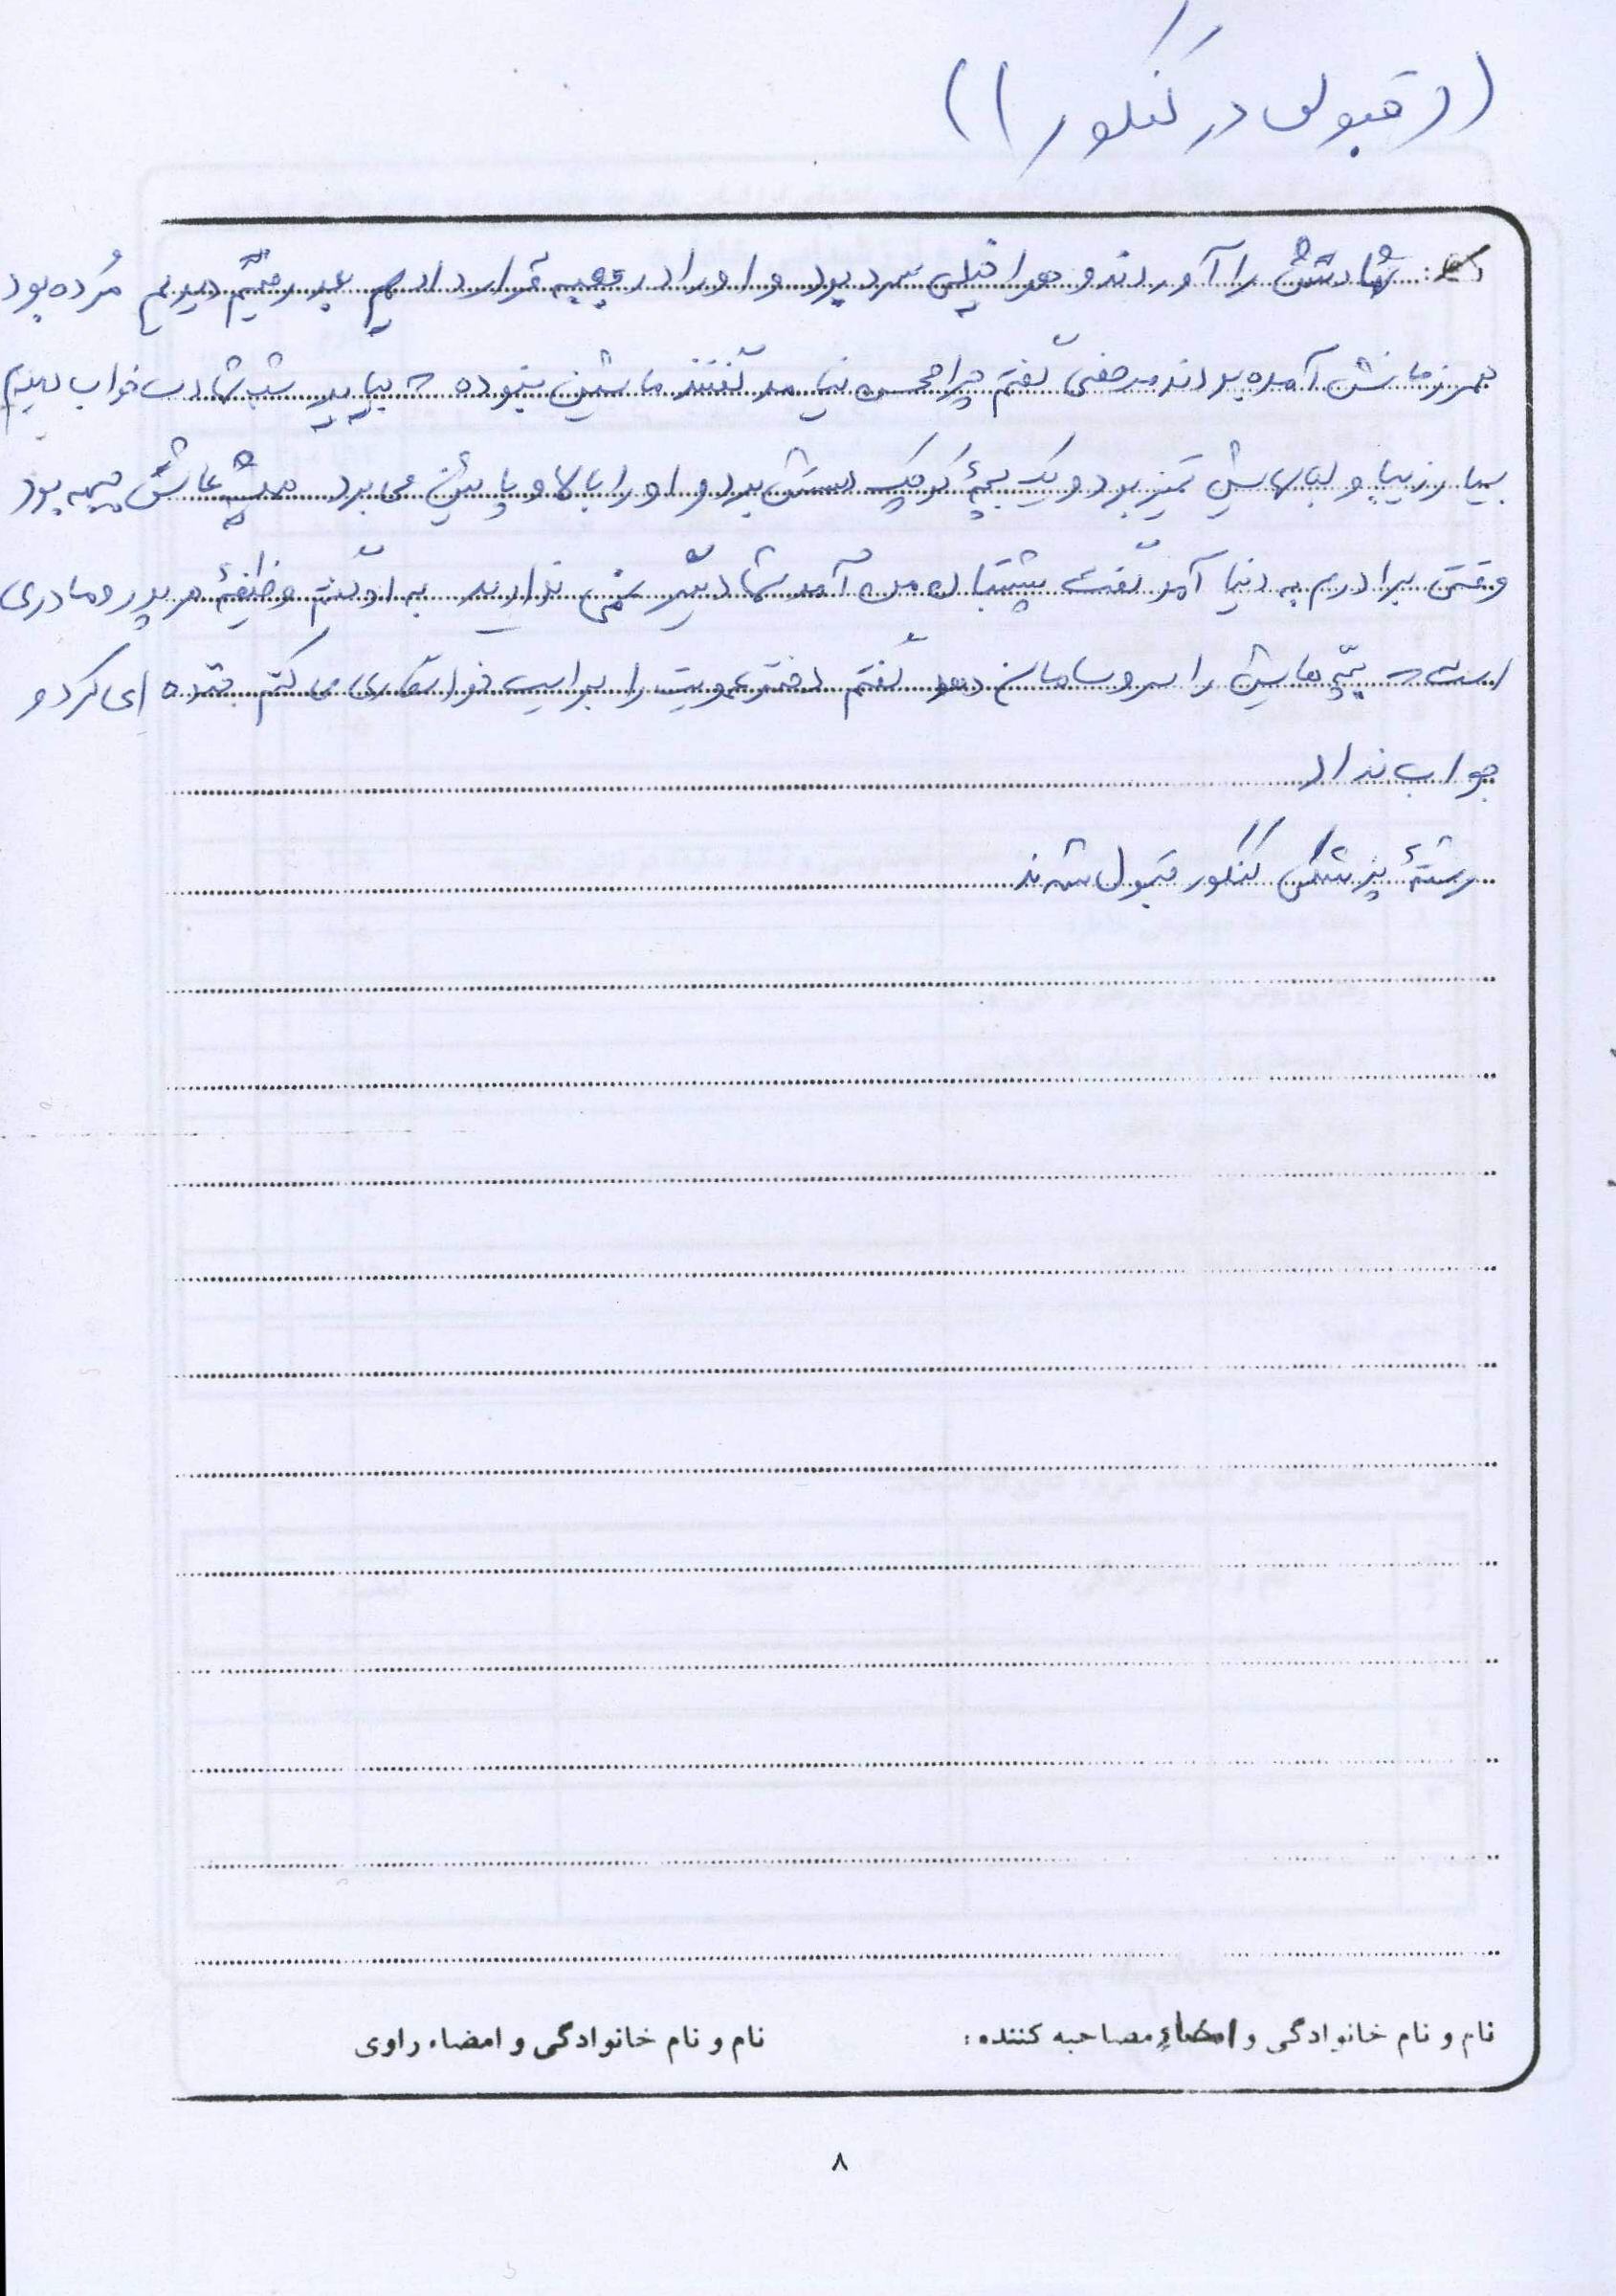 ((قبولی در کنکور))
شهادتش را آوردند و هوا خیلی سرد بود و او را در قرار دادیم بعد رفتیم دیدیم مُرده بود
همرزمانش آمده بودند مرخصی گفتم چرا محسن نیامد گفتند ماشین نبوده که بیاید شب شهادت خواب دیدم
بسیار زیبا و لباسهایش تمیز بود و یک بچۀ کوچک دستش بود و او را بالا و پائین می برد همیشه دعایش بود
وقتی برادرم به دنیا آمد گفت پشتیبان من آمد شما دیگر غمی ندارید به او گفتم وظیفۀ هر پدر و مادری
است که بچّه هایش را سر و سامان دهد گفتم دختر عمویت را برایت خواستگاری می کنم خنده ای کرد و
جواب نداد
رشتۀ پزشکی کنکور قبول شدند
نام و نام خانوادگی و امضاءِ مصاحبه کننده:
نام و نام خانوادگی و امضاء راوی
۸